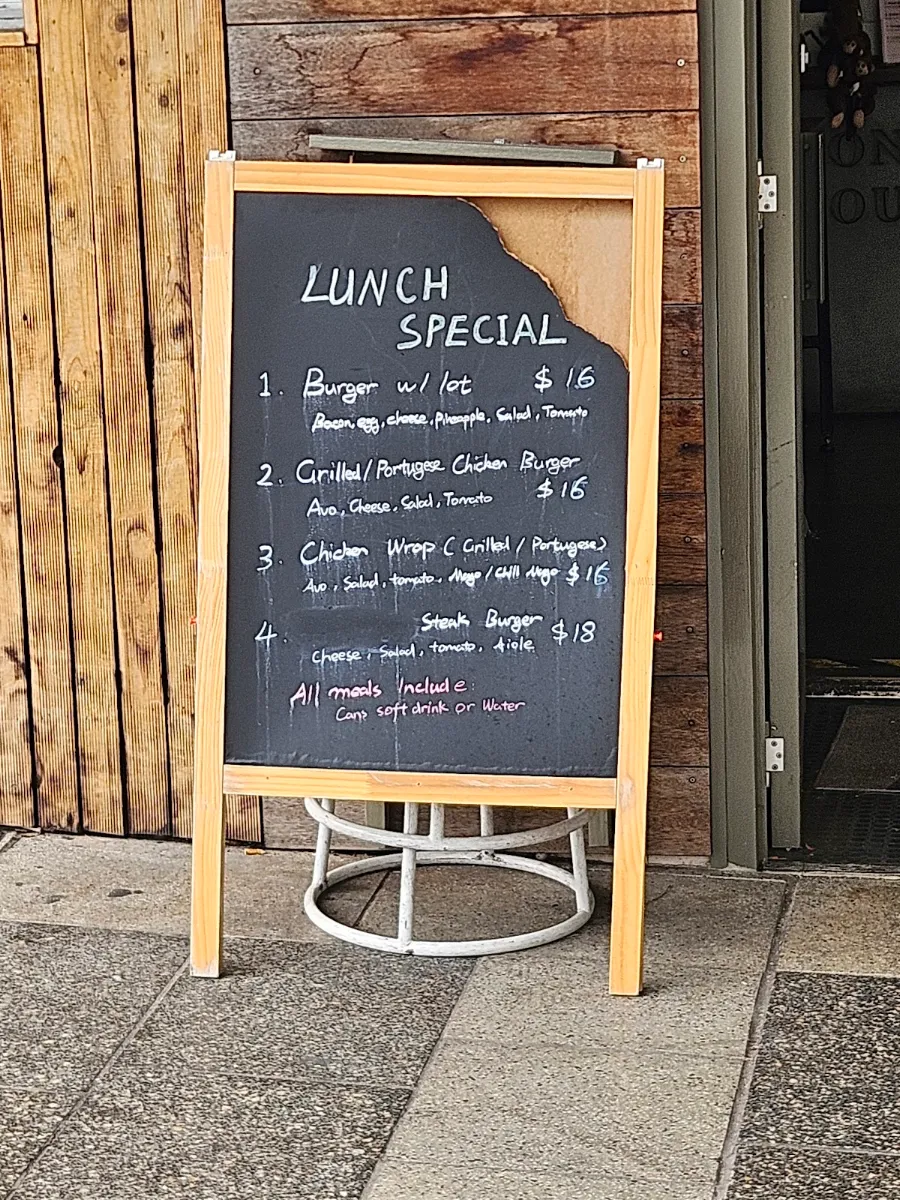 LUNCH
SPECIAL
1. Burger w/ lot $16
Bacon, egg, cheese, Pineapple, Salad, Tomato
2. Grilled/Portugese Chicken Burger
Avo, Cheese, Salad, Tomato $16
3. Chicken Wrap (Grilled / Portugese)
Avo, Salad, tomato, Mayo/Chilli Mayo $16
4. Steak Burger $18
Cheese, Salad, tomato, Aiole
All meals Include:
Cans soft drink or Water
ON
OU